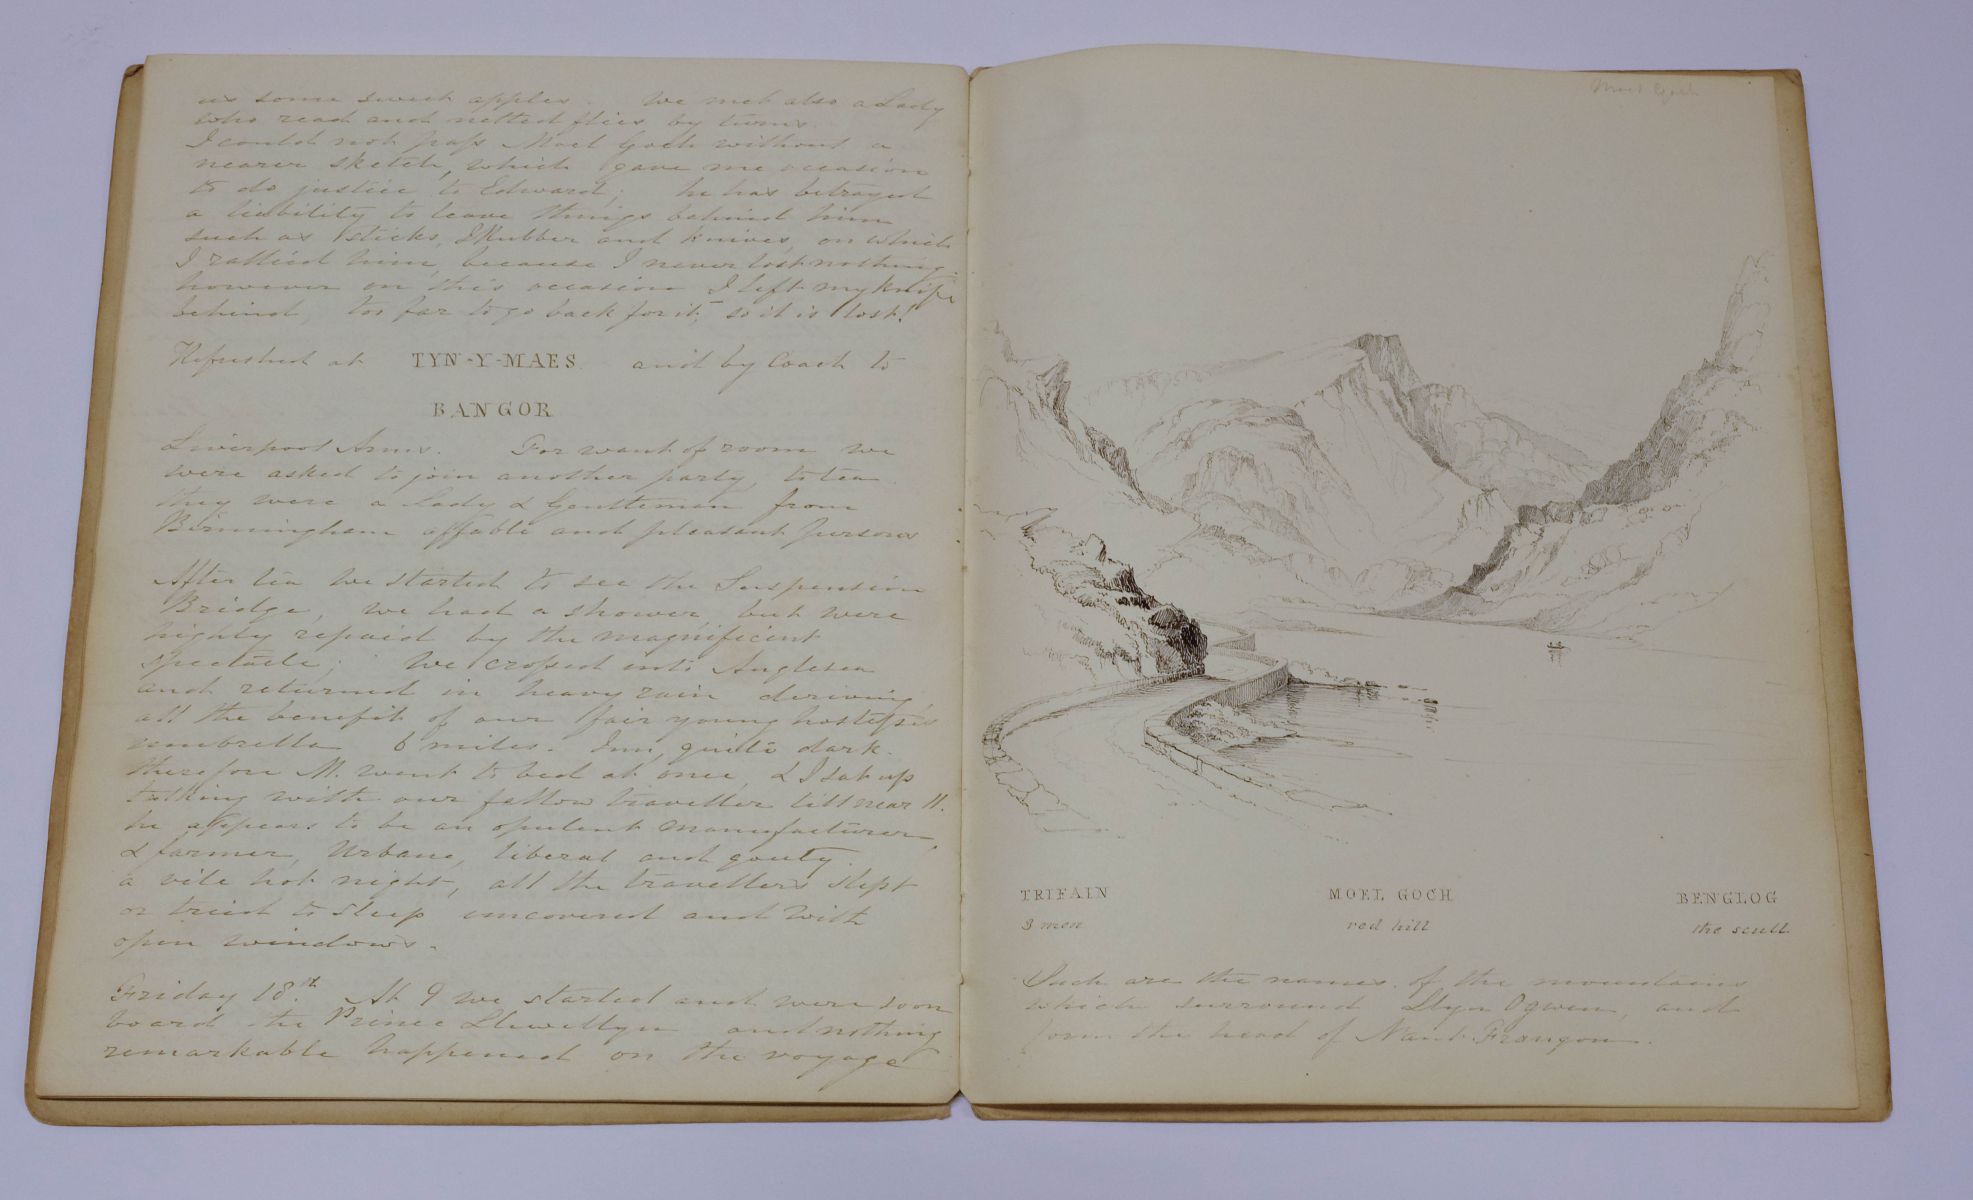 us some sweet apples. We met also a Lady
who read and netted flies by turns.
I could not pass Moel Goch without a
nearer sketch, which gave me occasion
to do justice to Edward; he has betrayed
a liability to leave things behind him
such as sticks, IRubber and knives, on which
I rallied him, because I never lost nothing.
however on this occasion I left my knife
behind, too far to go back for it, so it is lost!
Refreshed at TYN-Y-MAES. and by Coach to
BANGOR
Liverpool Arms. For want of room we
were asked to join another party, to tea
they were a Lady & Gentleman from
Birmingham affable and pleasant persons
After tea we started to see the Suspension
Bridge, we had a shower but were
highly repaid by the magnificent
spectacle; We crossed into Anglesea
and returned in heavy rain deriving
all the benefit of our fair young hostess's
umbrella 6 miles. Inn, quite dark.
therefore M. went to bed at once, & I sat up
talking with our fellow traveller till near 11.
he appears to be an opulent manufacturer,
& farmer, Urbane, liberal and gouty.
a vile hot night, all the travellers slept
or tried to sleep uncovered and with
open windows.
Friday 18.th At 9 we started and were soon
board the Prince Llewellyn and nothing
remarkable happened on the voyage
Moel Goch
TRIFAIN MOEL GOCH BENGLOG
3 men red hill the scull
Such are the names of the mountains
which surround Llyn Ogwen, and
form the head of Nant Frangon.